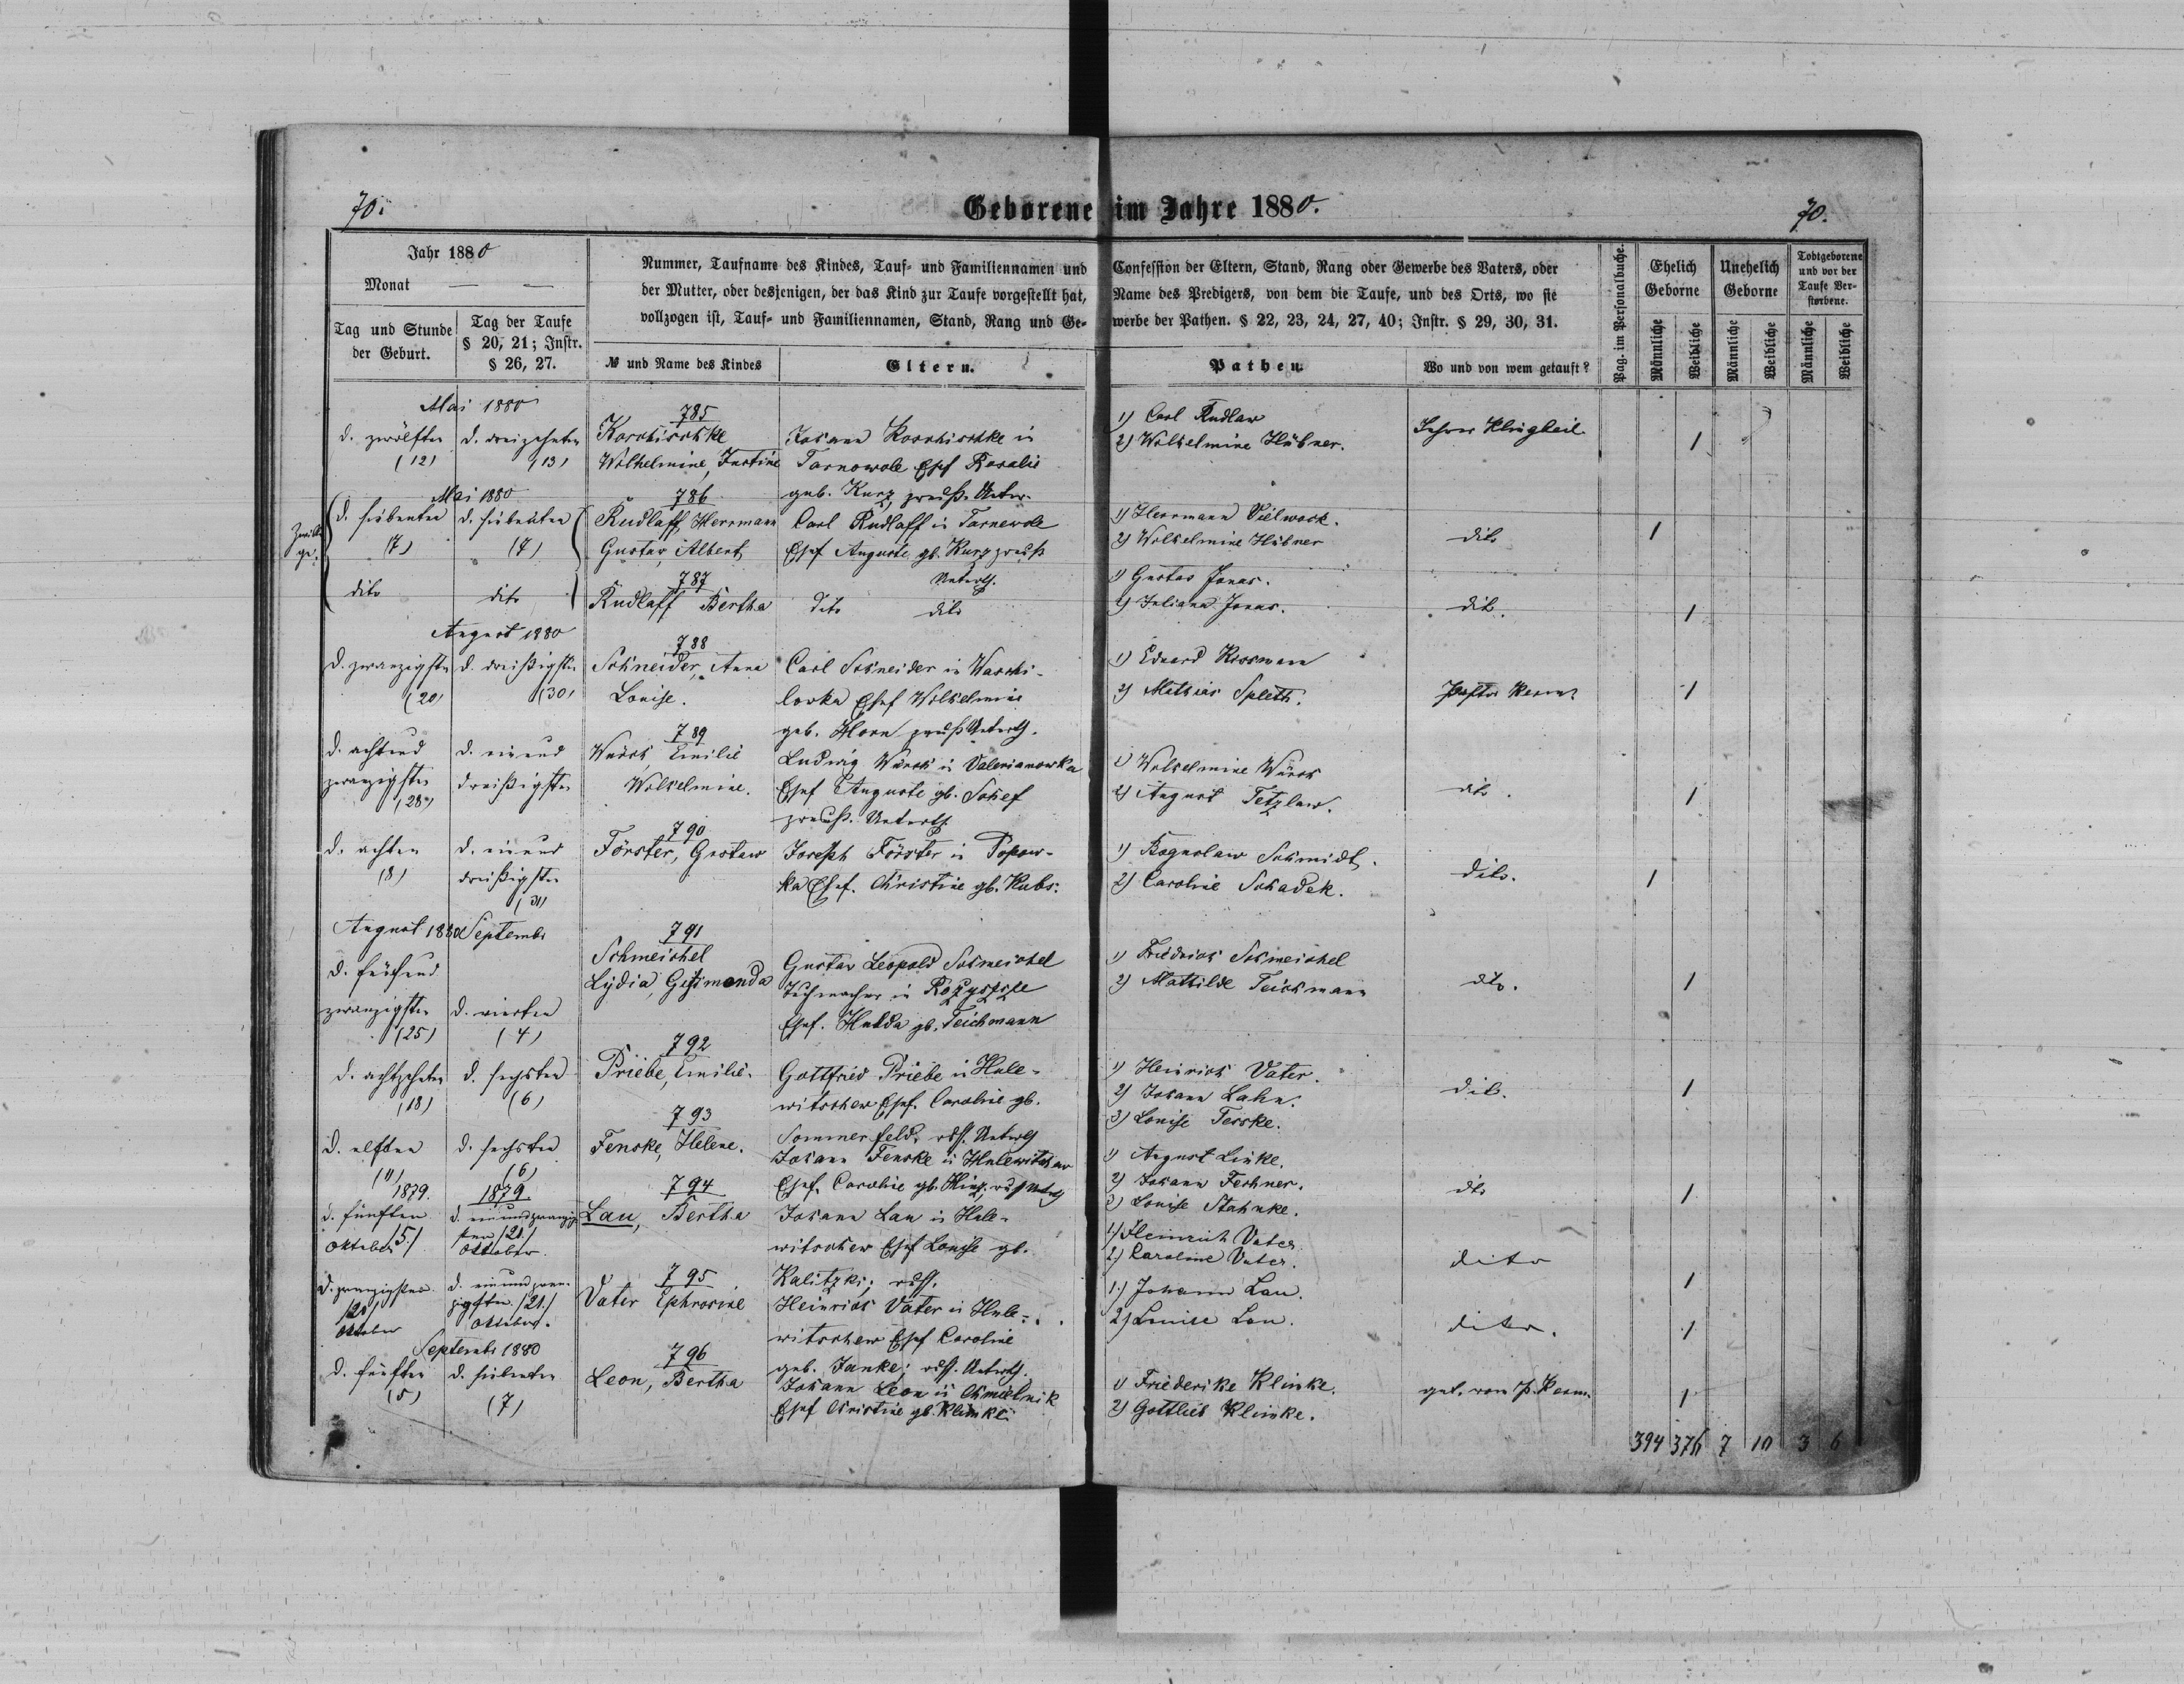 70.
Geborene im Jahre 1880.
70.
Jahr 1880
Monat — —
Tag und Stunde der Geburt.
Tag der Taufe § 20, 21; Instr. § 26, 27.
Nummer, Taufname des Kindes, Tauf- und Familiennamen und Confession der Eltern, Stand, Rang oder Gewerbe des Vaters, oder
der Mutter, oder desjenigen, der das Kind zur Taufe vorgestellt hat, Name des Predigers, von dem die Taufe, und des Orts, wo sie
vollzogen ist, Tauf- und Familiennamen, Stand, Rang und Gewerbe der Pathen. § 22, 23, 24, 27, 40; Instr. § 29, 30, 31.
№ und Name des Kindes
Eltern.
Pathen.
Wo und von wem getauft?
Pag. im Personalbuche.
Ehelich Geborne
Unehelich Geborne
Todtgeborene und vor der Taufe Verstorbene.
Männliche
Weibliche
Männliche
Weibliche
Männliche
Weibliche
Mai 1880
d. zwölften
(12)
d. dreizehnten
(13)
785
Wilhelmine, Justine
Johann
in
Tarnowole Ehef Rosalie
geb. Kurz, preuß. Unter.
1) Carl Rudlaw
2) Wilhelmine Hübner.
1
Mai 1880
Zwillinge.
d. siebenten
(7)
d. siebenten
(7)
786
Rudlaff, Herrmann
Gustav, Albert
Carl Rudlaff in Tarnewole
Ehef Auguste gb. Kurz preuß
Unterth.
1) Herrmann
2) Wilhelmine Hübner
dito
1
dito
dito
787
Rudlaff Bertha
dito dito
1) Gustav Jonas.
2) Juliana Jonas.
dito.
1
August 1880
d. zwanzigsten
(20)
d. dreißigsten
(30)
788
Schneider, Anna
Louise.
Carl Schneider in Waschi-
lowka Ehef Wilhelmine
geb. Horn preuß Unterth.
1) Eduard
2) Mathias Spletth.
Pastor Kerm
1
d. achtund
zwanzigsten
(28)
d. einund
dreißigsten
789
Emilie
Wilhelmine.
Ludwig in Valerianowka
Ehef Auguste gb. Schef
preuß. Unterth.
1) Wilhelmine
2) August Tetzlaw.
dito.
1
d. achten
(8)
d. einund
dreißigsten
(31)
790
Förster, Gustaw
Joseph Förster in Popow-
ka Ehef. Christine gb. Kubs.
1) Boguslaw Schmidt.
2) Caroline Schadek.
dito.
1
August 1880 Septembr
d. fünfund
zwanzigsten
(25)
d. vierten
(4)
791
Schmeichel
Lydia,
Gustav Leopold Schmeichel
Tuchmacher in Rozyszcze
Ehef. Hulda gb. Teichmann
1) Friedrich Schmeichel
2) Mathilde Teichmann
dito.
1
d. achtzehnten
(18)
d. sechsten
(6)
792
Priebe, Emilie.
Gottfried Priebe in Hule-
witschew Ehef. Caroline gb.
Sommerfeld, russ. Unterth
1) Heinrich Vater.
2) Johann Lahn.
3) Louise Teske.
dito.
1
d. elften
(11)
d. sechsten
(6)
793
Fenske, Helene.
Johann Fenske in Hulewitschew
Ehef. Caroline gb. Hinz, russ Unterth
1) August Linke.
2) Johann Fechner.
3) Louise Stahnke.
dito
1
1879.
d. fünften
Oktober /5./
1879.
d. einundzwanzig-
sten /21./
Oktober.
794
Lau, Bertha
Johann Lau in Hule-
witschew Ehef Louise gb.
Kalitzki; russ.
1.) Heinrich Vater
2.) Karoline Vater.
dito
1
d. zwanzigsten
/20/
Oktober
d. einundzwan-
zigsten /21./
Oktober.
795
Vater Ephrosine
Heinrich Vater in Hule-
witschew Ehef Caroline
geb. Janke; russ. Unterth.
1.) Johann Lau.
2.) Louise Lau.
dito.
1
Septembr 1880
d. fünften
(5)
d. siebenten
(7)
796
Leon, Bertha
Johann Leon in Chmielnik
Ehef Christine gb. Klimke
1) Friederike Klinke.
2) Gottlieb Klimke.
get. vom P. Kerm.
1
394 376 7 10 3 6